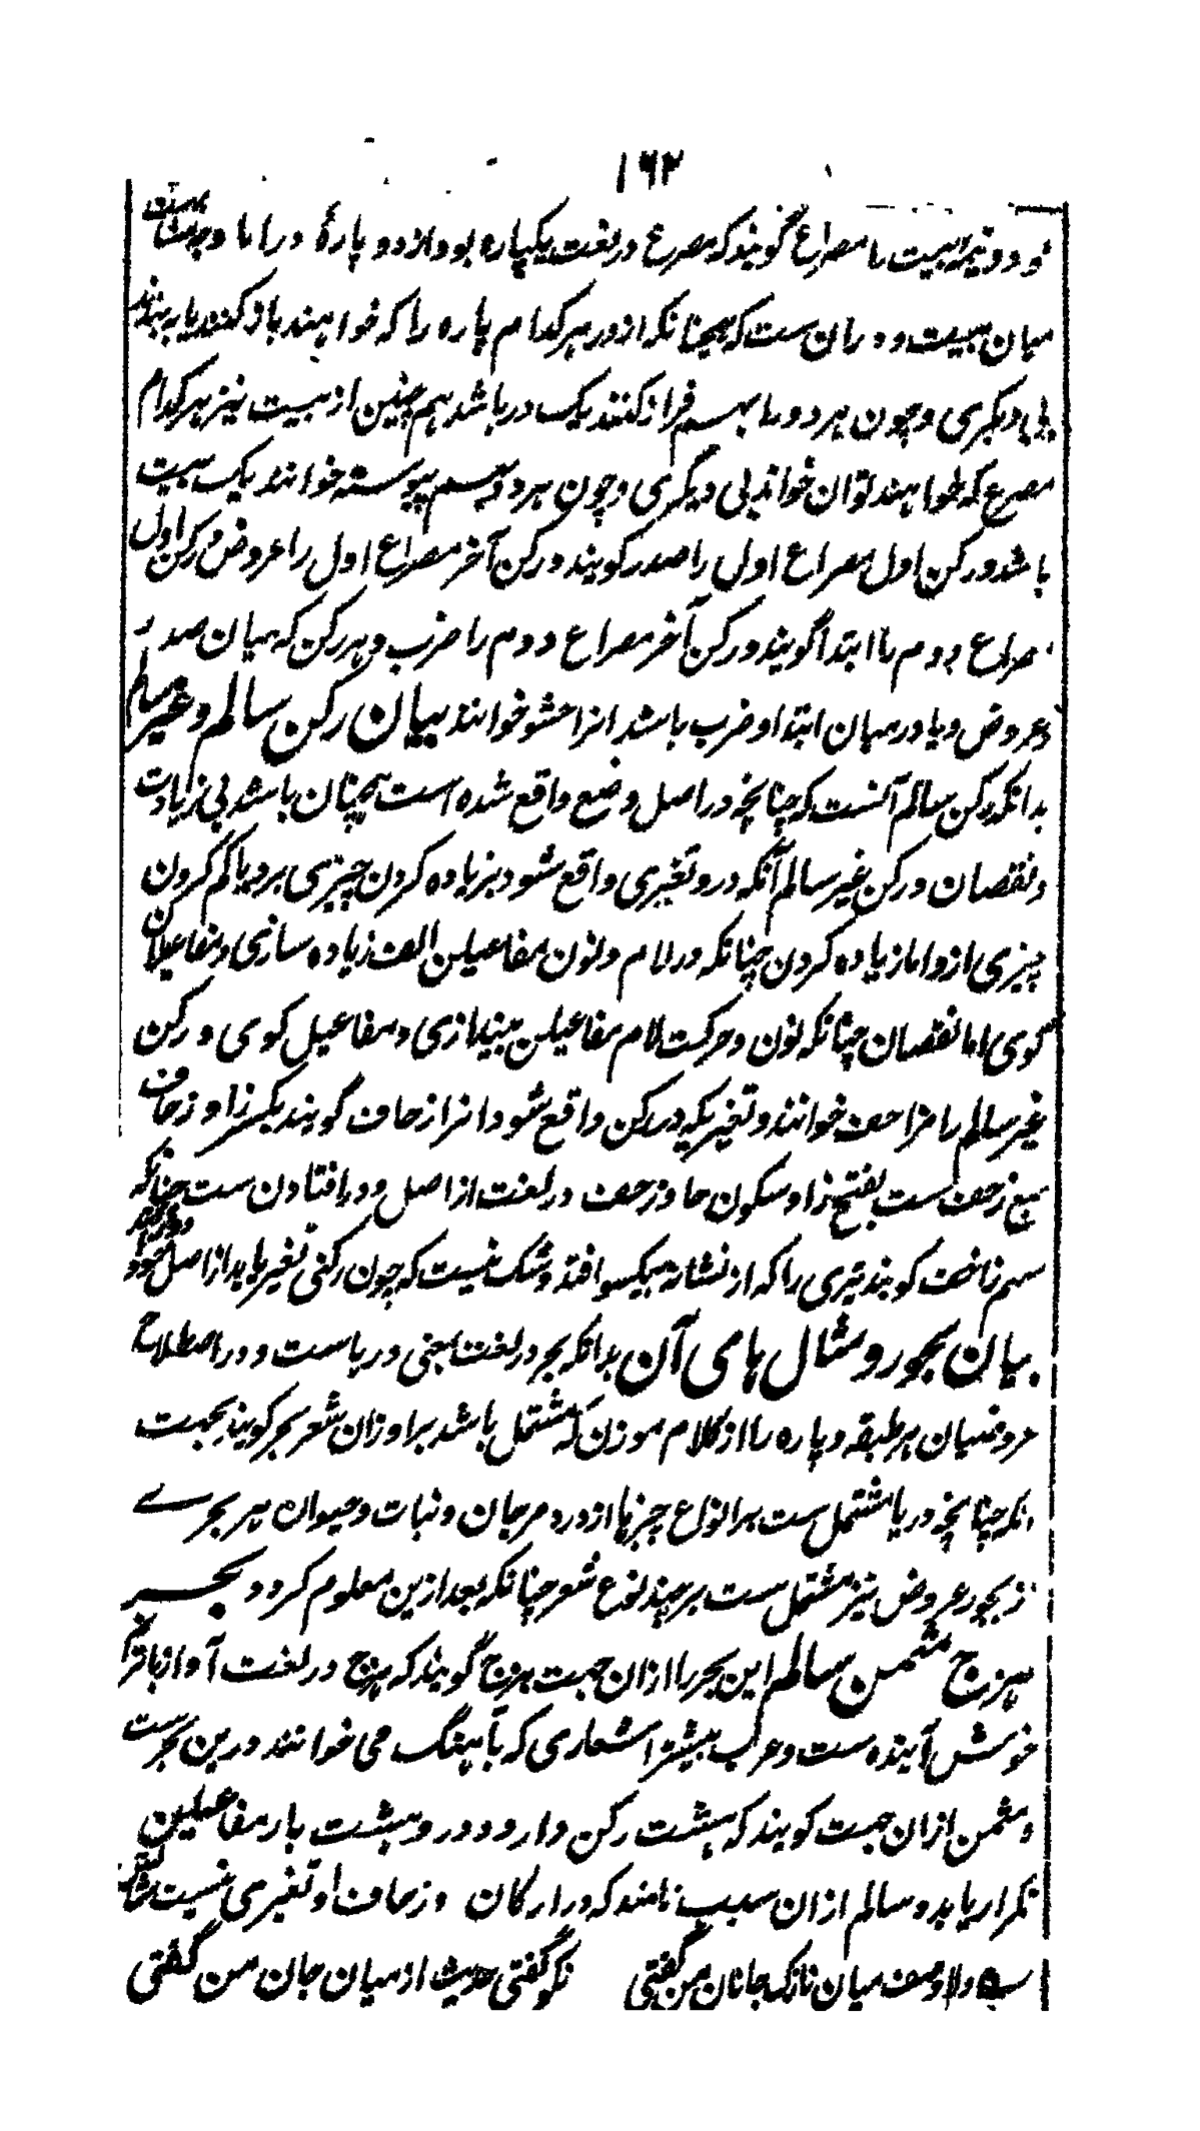 ۱۶۲
بود و نیمه بیت را مصراع گویند که مصرع در لغت یکپاره بود از دو پارهٔ در اما وجه مشابهت
میان بیت و در آن ست که همچنانکه از در هر کدام پاره را که خواهند باز کنند یا به بندند
بی دیگری و چون هر دو را بهم فراز کنند یک در باشد هم چنین از بیت نیز هر کدام
مصرع که خواهند توان خواند بی دیگری و چون هر دو بهم پیوسته خوانند یک بیت
باشد و رکن اول مصراع اول را صدر گویند و رکن آخر مصراع اول را عروض و رکن اول
مصراع دوم را ابتدا گویند و رکن آخر مصراع دوم را ضرب و هر رکن که میان صدر
و عروض و یا در میان ابتدا و ضرب باشد انرا حشو خوانند بیان رکن سالم و غیر سالم
بدانکه رکن سالم آنست که چنانچه در اصل وضع واقع شده است همچنان باشد بی زیادت
و نقصان و رکن غیر سالم آنکه درو تغیری واقع شود بزیاده کردن چیزی برو یا کم کردن
چیزی ازو اما زیاده کردن چنانکه در لام و نون مفاعیلن الف زیاده سازی و مفاعیلان
گوی اما نقصان چنانکه نون و حرکت لام مفاعیلن بیندازی و مفاعیل گوی و رکن
غیر سالم را مزاحف خوانند و تغیریکه در رکن واقع شود انرا زحاف گویند بکسر زا و زحاف
جمع زحف ست بفتح زا و سکون حا و زحف در لغت از اصل دور افتادن ست چنانکه
سهم زاحف گویند تیری را که از نشانه بیکسو افتد و شک نیست که چون رکنی تغیر یابد از اصل خود دور افتد
بیان بحور و مثال های آن بدانکه بحر در لغت بمعنی دریاست و در اصطلاح
عروضیان هر طبقه و پاره را از کلام موزون که مشتمل باشد بر اوزان شعر بحر گویند بجهت
انکه چنانچه دریا مشتمل ست بر انواع چیزها از در و مرجان و نبات و حیوان هر بحرے
از بحور عروض نیز مشتمل ست بر چند نوع شعر چنانکه بعد ازین معلوم گردد بحر
هزج مثمن سالم این بحر را ازان جهت هزج گویند که هزج در لغت آواز با ترنم
خوش آینده ست و عرب بیشتر اشعاری که بآهنگ می خوانند درین بحر ست
و مثمن ازان جهت گویند که هشت رکن دارد و درو هشت بار مفاعیلن
تکرار یابد و سالم ازان سبب نامند که در ارکان و زحاف او تغیری نیست مثالش
دلا وصف میان نازک جانان من گفتی نکو گفتی حدیث از میان جان من گفتی